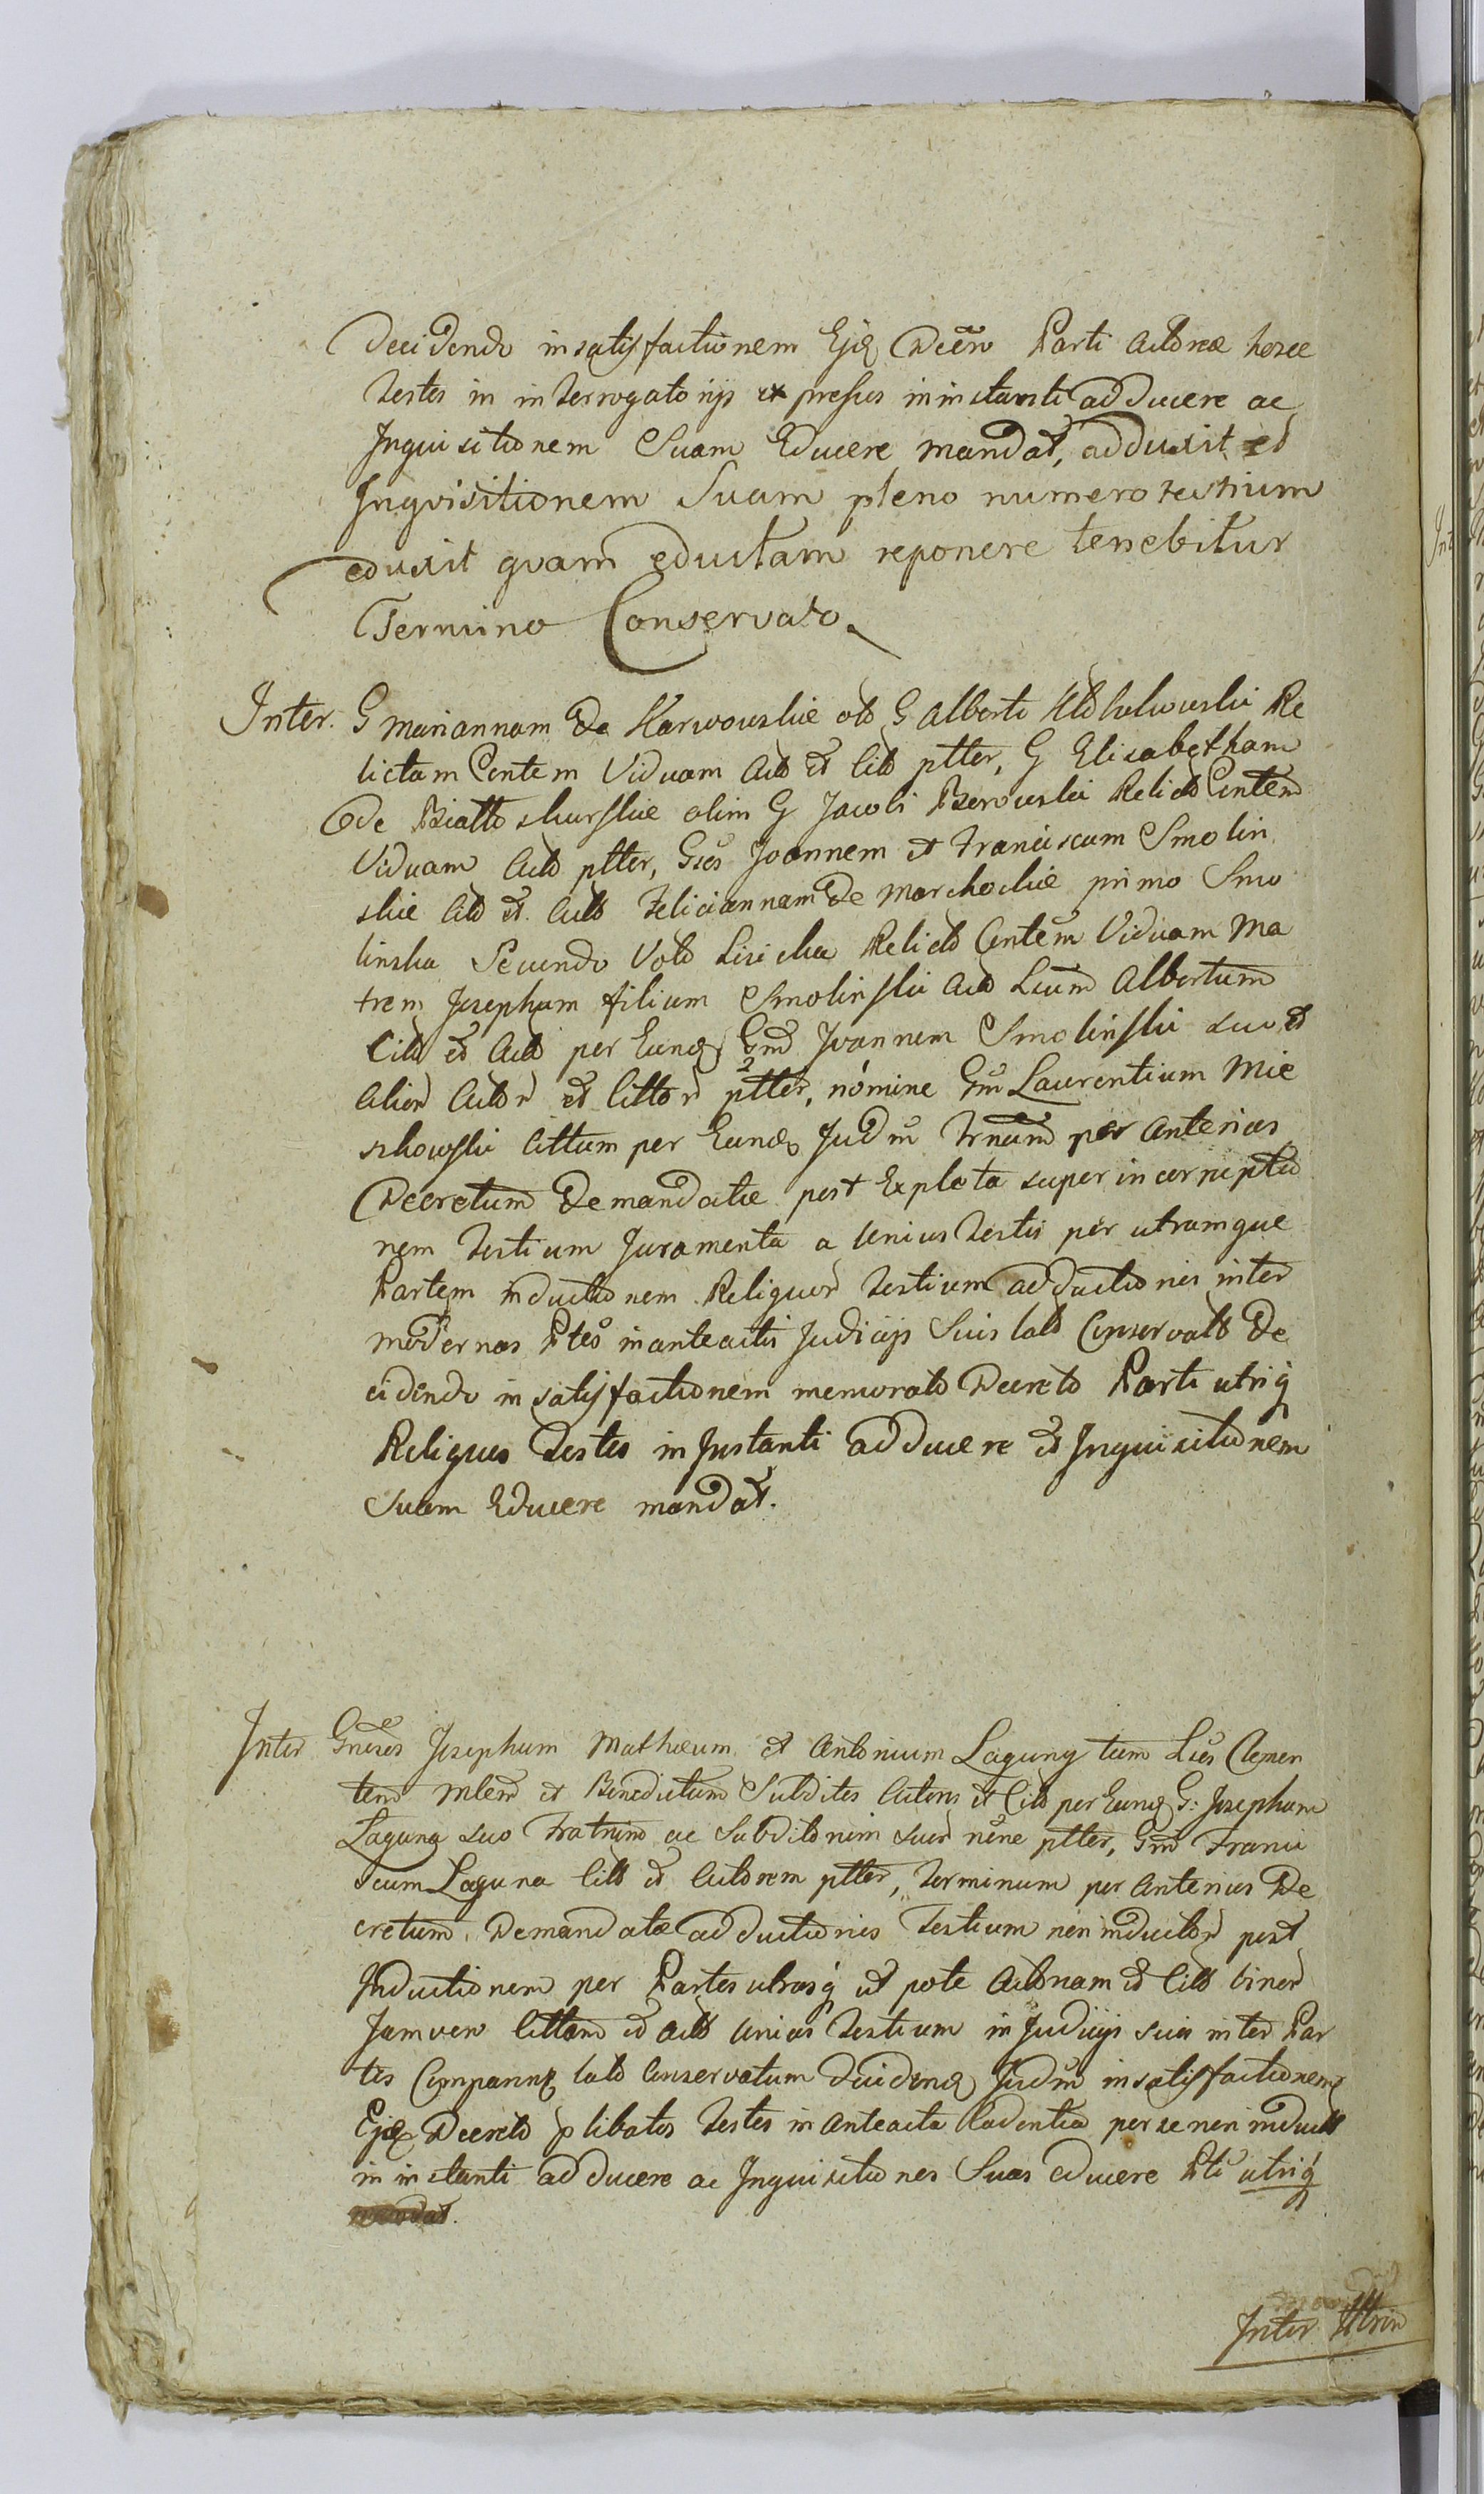 Decidendo in satisfactionem Ejq Decēn Parti Actoreæ hosce
testes in interrogatorijs expressos in instanti adducere ac
Inquisitionem Suam Educere mandat, adduxit et
Inqvisitionem Suam pleno numero testium
eduxit qvam eductam reponere tenebitur
Termino Conservato.
Inter G Mariannam De Karwowskie olo G Alberti Re
lictam Contem Viduam Acto et Cito ptter, G Elisabetham
De olim G Jacobi Relicto Contem
Viduam Acto ptter, Gsos Joannem et Franciscum Smolin
skie Cito et Acto Feliciannam De Marchockie primo Smo
linska Secundo Voto Relicto Contem Viduam Ma
trem Josephum filium Smolinski Acto Albertum
Cito et Acto per Eund Gnd Joannem Smolinski suo et
alior Actor et Cittor ptter, nomine Gm Laurentium Mie
szkowski Cittum per Eund Judm per Anterius
Decretum Demandatæ post Expleta super incorruptio
nem testium Juramenta a Unius testis per utramque
Partem inductionem Reliquor testium adductionis inter
modernas Ptes in anteactis Judicijs Suis lato Conservato De
cidendo in satisfactionem memorato Decreto Parti utriq
Reliquos testes in Instanti adducere et Inquisitionem
Suam Educere mandat.
Inter Josephum Mathæum et Antonium Laguny tum Clemen
tem et Benedictum Subditos Actores et Cito per Eund G: Josephum
Laguna suo Fratrum ac Subditorum suor ptter, Gnd Franci
scum Laguna Cito et Actorem ptter, terminum per Anterius De
cretum Demandatæ adductionis Testium non inductor post
Inductionem per Partes utrasq ut pote Actoream et Cito binor
Jamvero Cittam et Acto Unius testium in Judicijs suis inter Par
tes lato Conservatum Decidend Judm in satisfactionem
Ejq Decreto testes in Anteacta Cadentia per se non inducto
in instanti adducere ac Inquisitiones Suas educere Pti utriq
mandat.
Inter